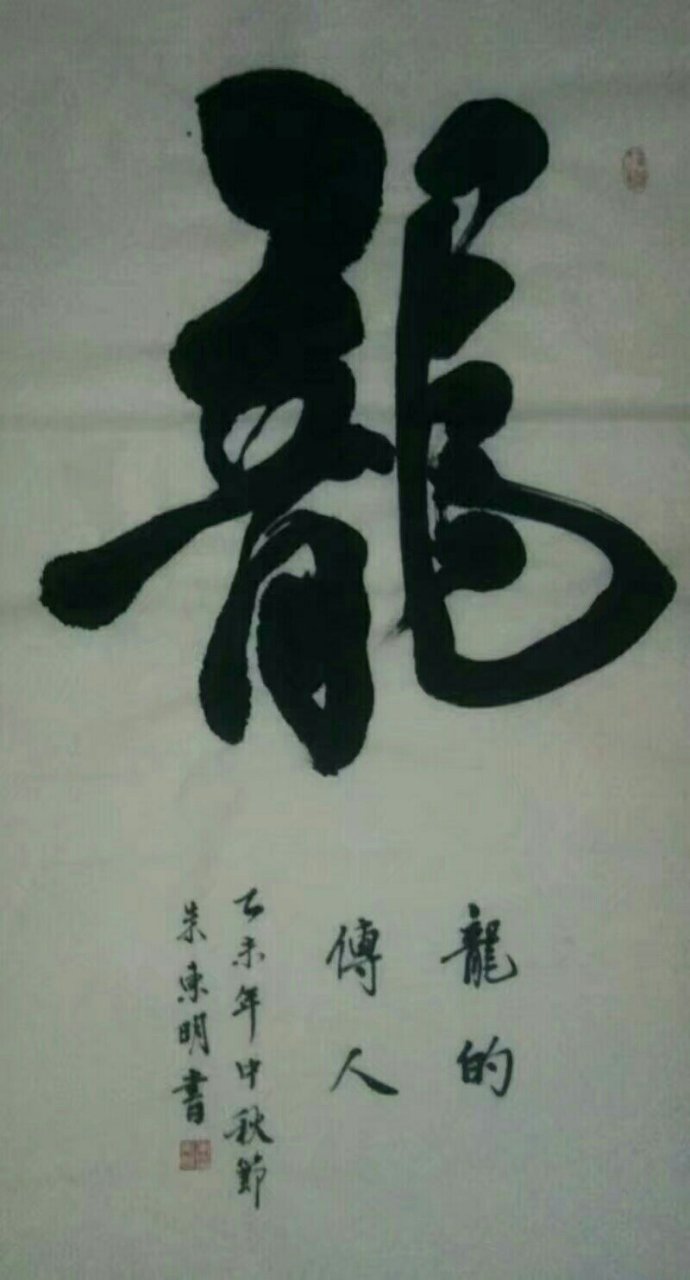 龍
龍的
傳人
乙未年中秋節
朱東明書